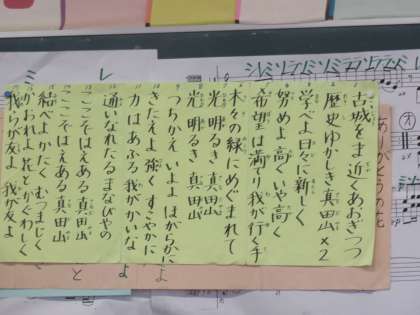 古城をま近くあおぎつつ
歴史ゆかしき真田山×2
学べよ日々に新しく
努めよ高くいや高く
希望は満てり我が行く手
木々の緑にめぐまれて
光明るき真田山
光明るき真田山
つちかえいよよほがらかに
きたえよ強くすこやかに
力はあふる我がかいなよ
通いなれたるまなびやの
ここそはえある真田山
ここそはえある真田山
結べよかたくむつまじく
かおれよ花とかぐわしく
我らが友よ我が友よ
ありがとうの花
シレミ
レ
ミ
と